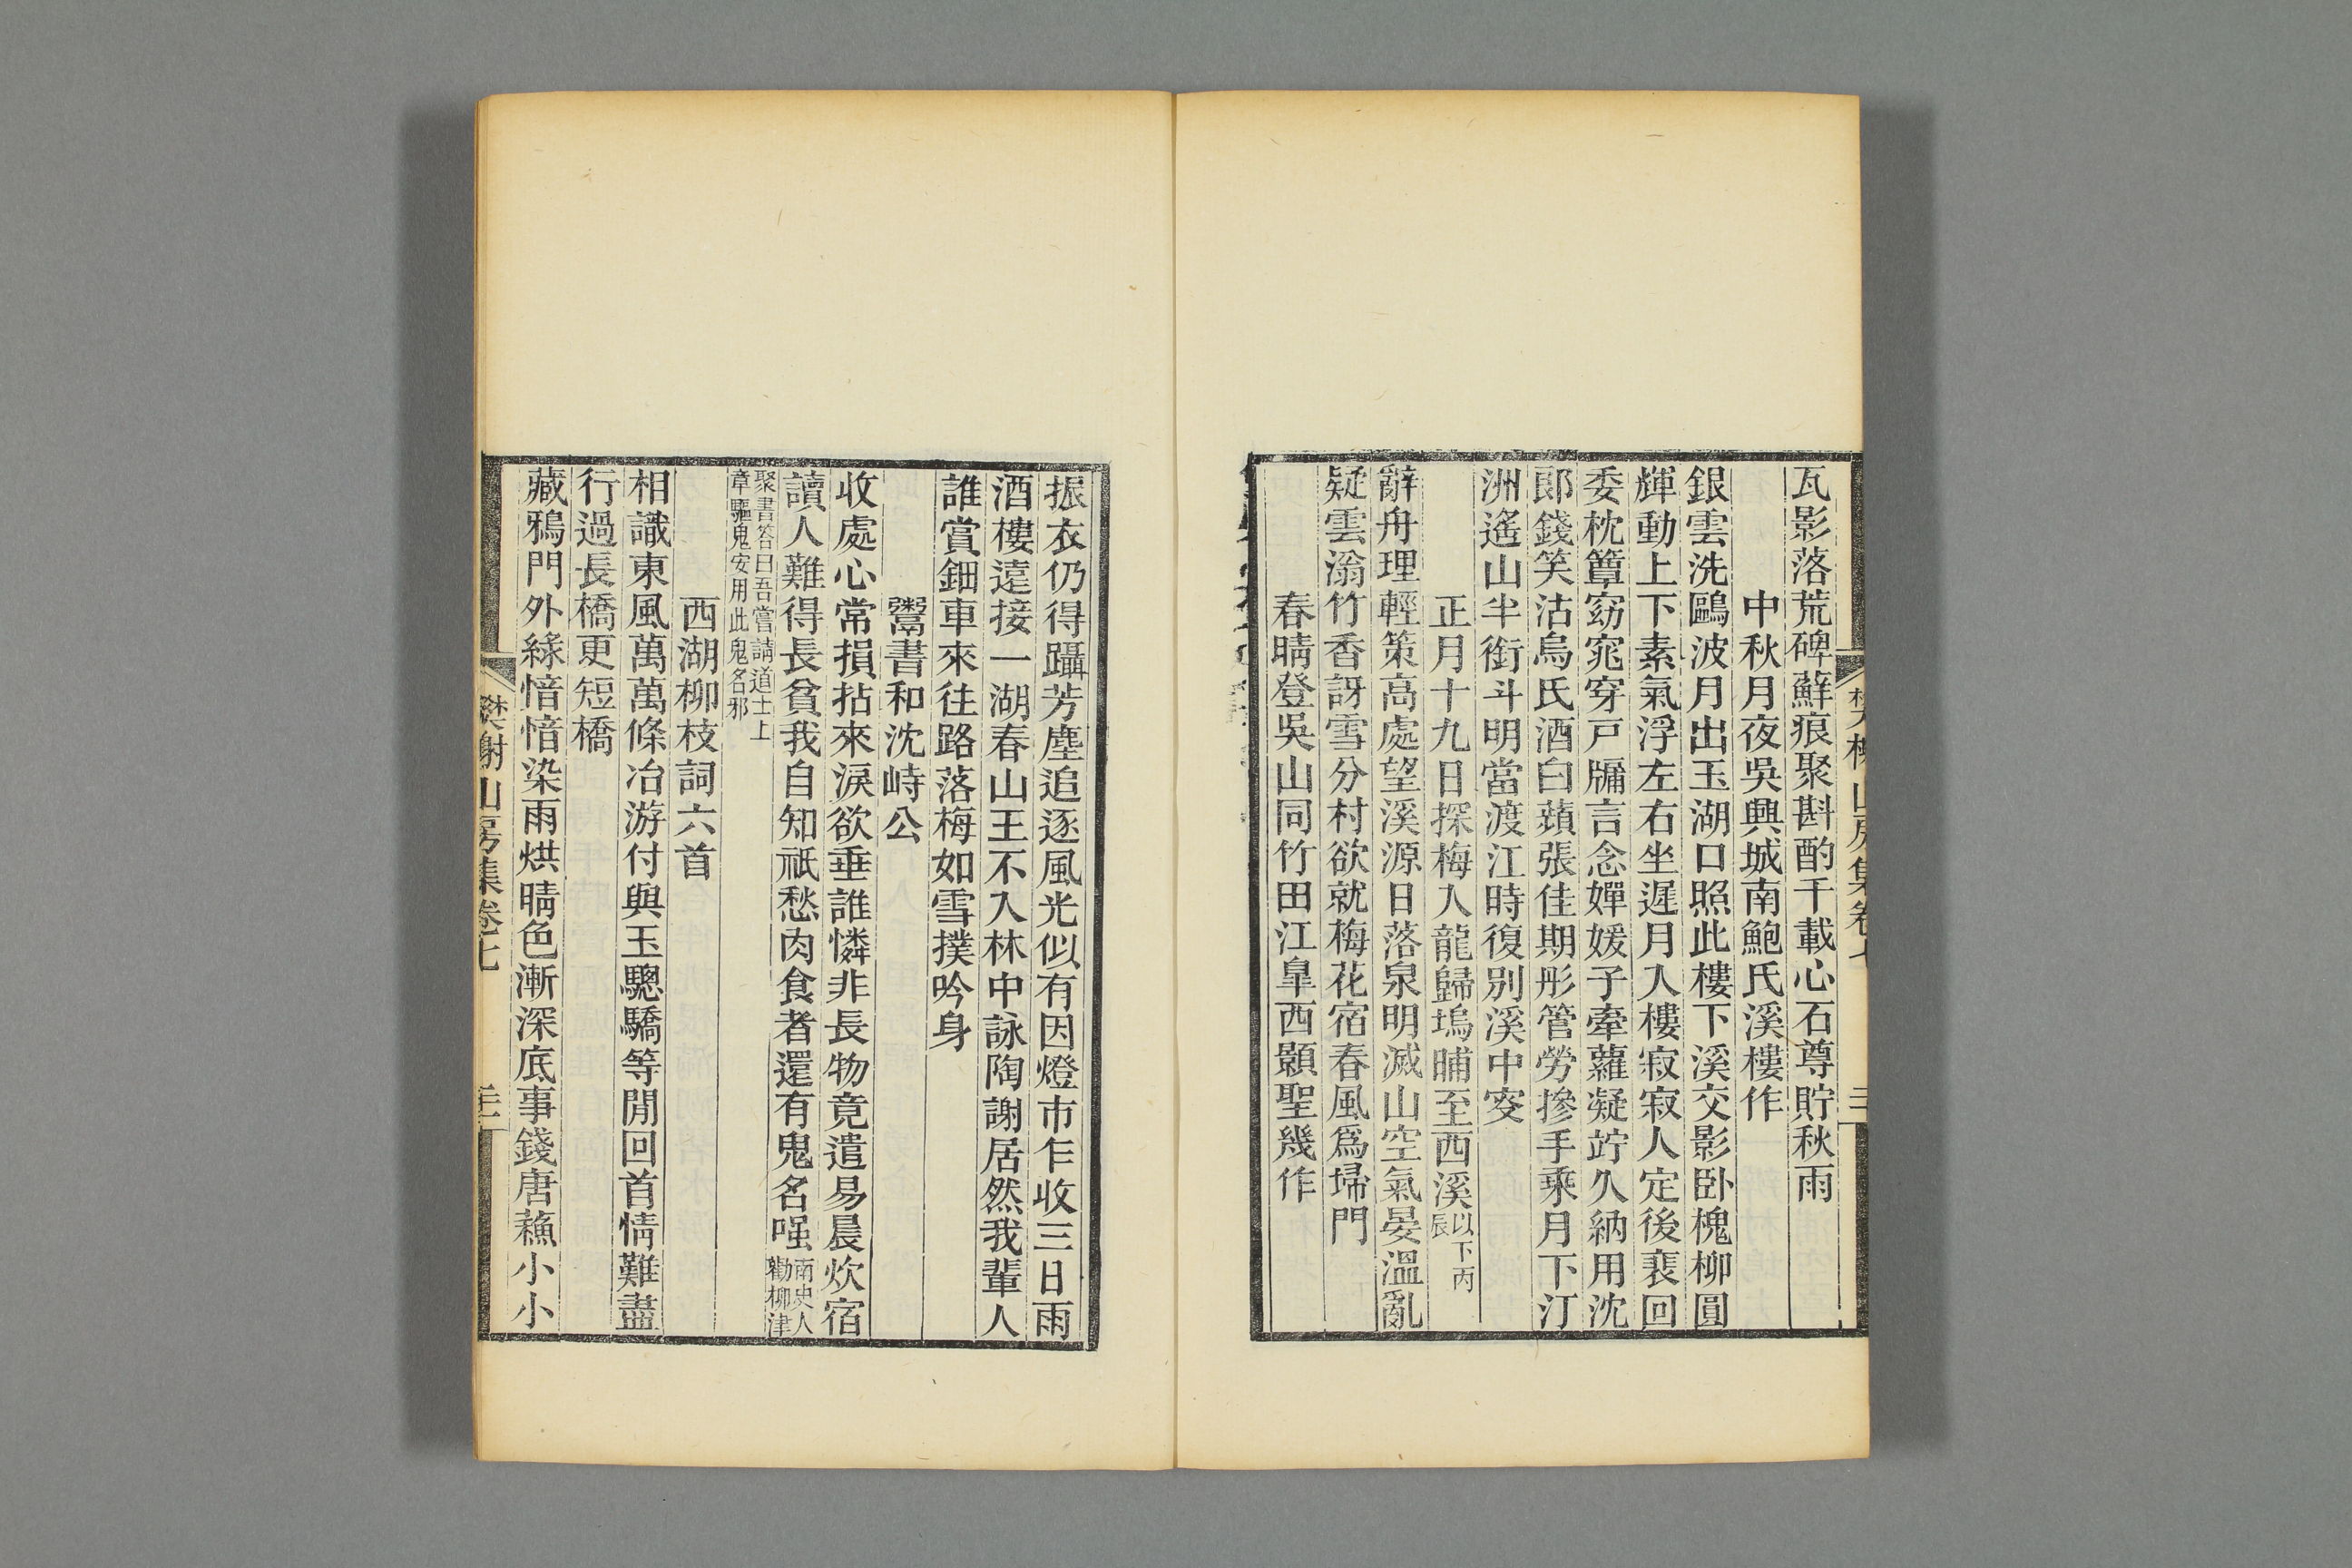 瓦影落荒碑蘚痕聚斟酌千載心石尊貯秋雨
中秋月夜吳興城南鮑氏溪樓作
銀雲洗鷗波月出玉湖口照此樓下溪交影卧槐柳圓
輝動上下素氣浮左右坐遲月入樓寂寂人定後裵回
委枕簟窈窕穿戸牖言念嬋媛子牽蘿凝竚久納用沈
郎錢笑沽烏氏酒白蘋張佳期彤管勞摻手乘月下汀
洲遙山半銜斗明當渡江時復別溪中叜
正月十九日探梅入龍歸塢晡至西溪以下丙辰
辭舟理輕策高處望溪源日落泉明滅山空氣晏溫亂
疑雲滃竹香訝雪分村欲就梅花宿春風爲埽門
春晴登吳山同竹田江臯西顥聖幾作
振衣仍得躡芳塵追逐風光似有因燈市乍收三日雨
酒樓遠接一湖春山王不入林中詠陶謝居然我輩人
誰賞鈿車來往路落梅如雪撲吟身
鬻書和沈峙公
收處心常損拈來淚欲垂誰憐非長物竟遣易晨炊宿
讀人難得長貧我自知祇愁肉食者還有鬼名嗤南史人勸柳津
聚書答曰吾嘗請道士上章驅鬼安用此鬼名邪
西湖柳枝詞六首
相識東風萬萬條冶游付與玉驄驕等閒回首情難盡
行過長橋更短橋
藏鴉門外緣愔愔染雨烘晴色漸深底事錢唐蘓小小
樊榭山房集卷七